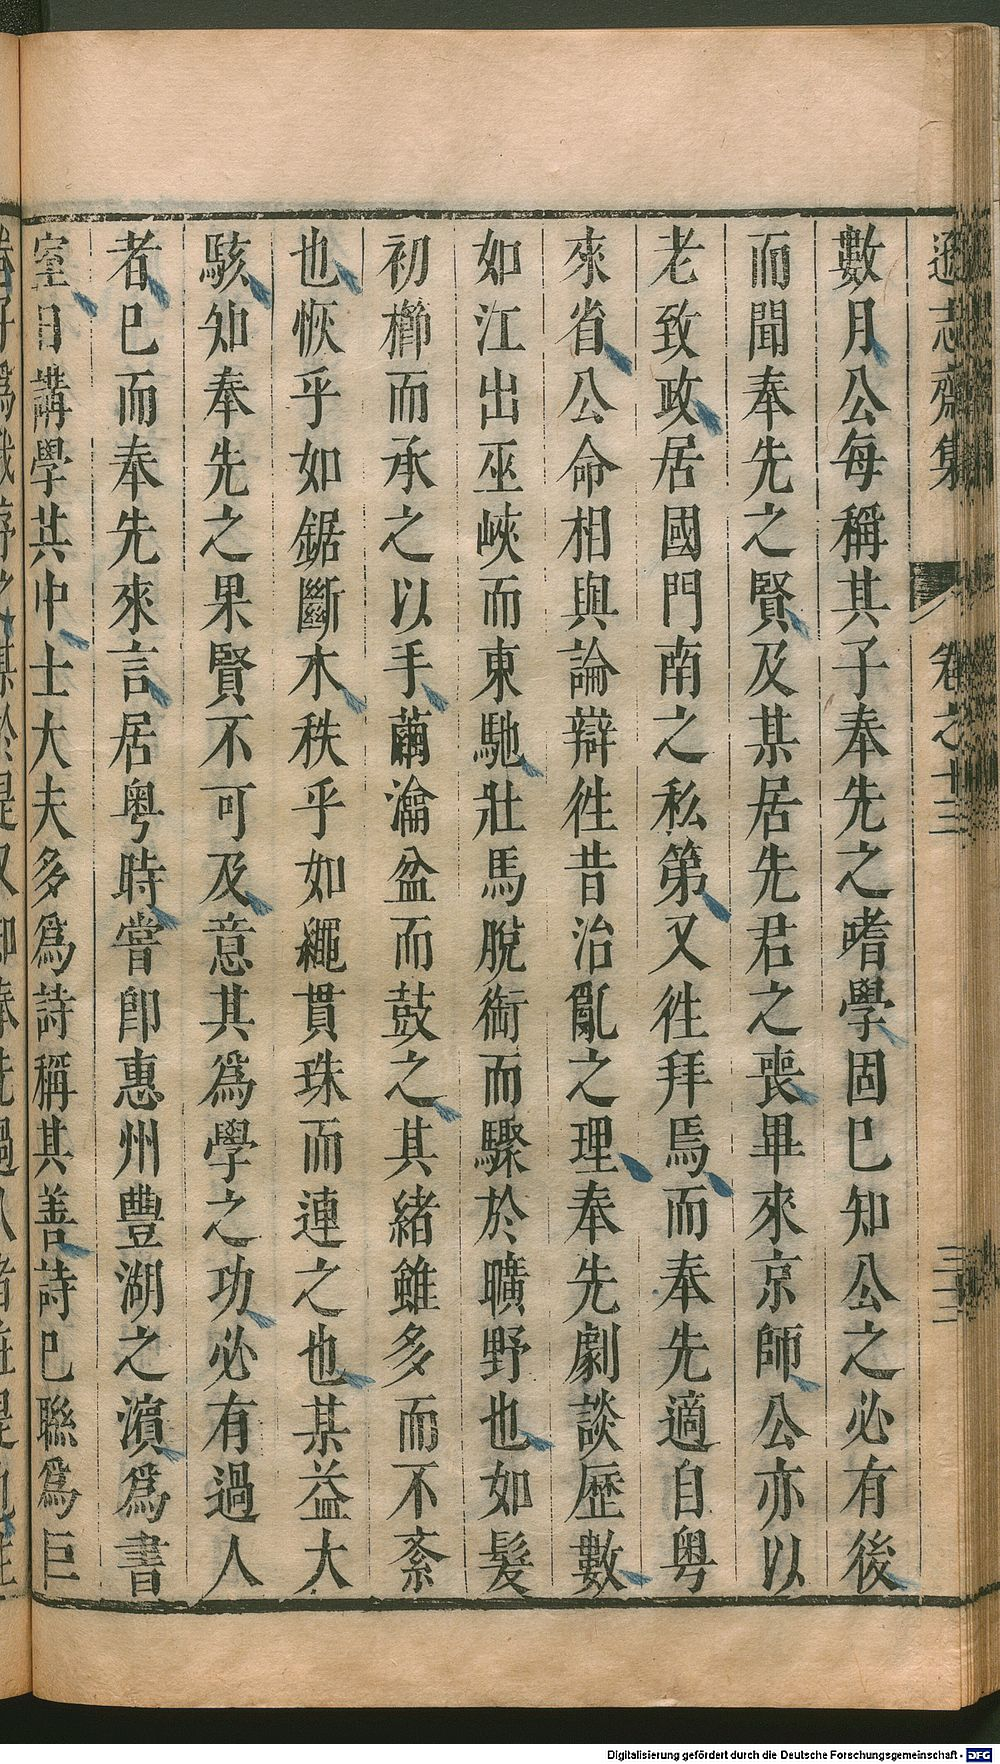 遜志齋集 卷之十三 三十二
數月公每稱其子奉先之嗜學固已知公之必有後
而聞奉先之賢及某居先君之喪畢來京師公亦以
老致政居國門南之私第又徃拜焉而奉先適自粤
來省公命相與論辯徃昔治亂之理奉先劇談歷數
如江出巫峽而東馳壯馬脫銜而驟於曠野也如髮
初櫛而承之以手繭瀹盆而鼓之其緒雖多而不紊
也恢乎如鋸斷木秩乎如繩貫珠而連之也某益大
駭知奉先之果賢不可及意其為學之功必有過人
者已而奉先來言居粤時嘗卽惠州豐湖之濱為書
室日講學其中士大夫多為詩稱其善詩已聯為巨
Digitalisierung gefördert durch die Deutsche Forschungsgemeinschaft - DFG